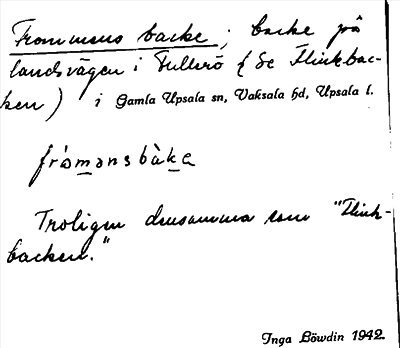 Frommens backe; backe på
landsvägen i Fullerö (se Flinkbac-
ken) i Gamla Upsala sn, Vaksala hd, Upsala l.
fròmənsbàkə
Troligen densamma som "Flink-
backen."
Inga Löwdin 1942.